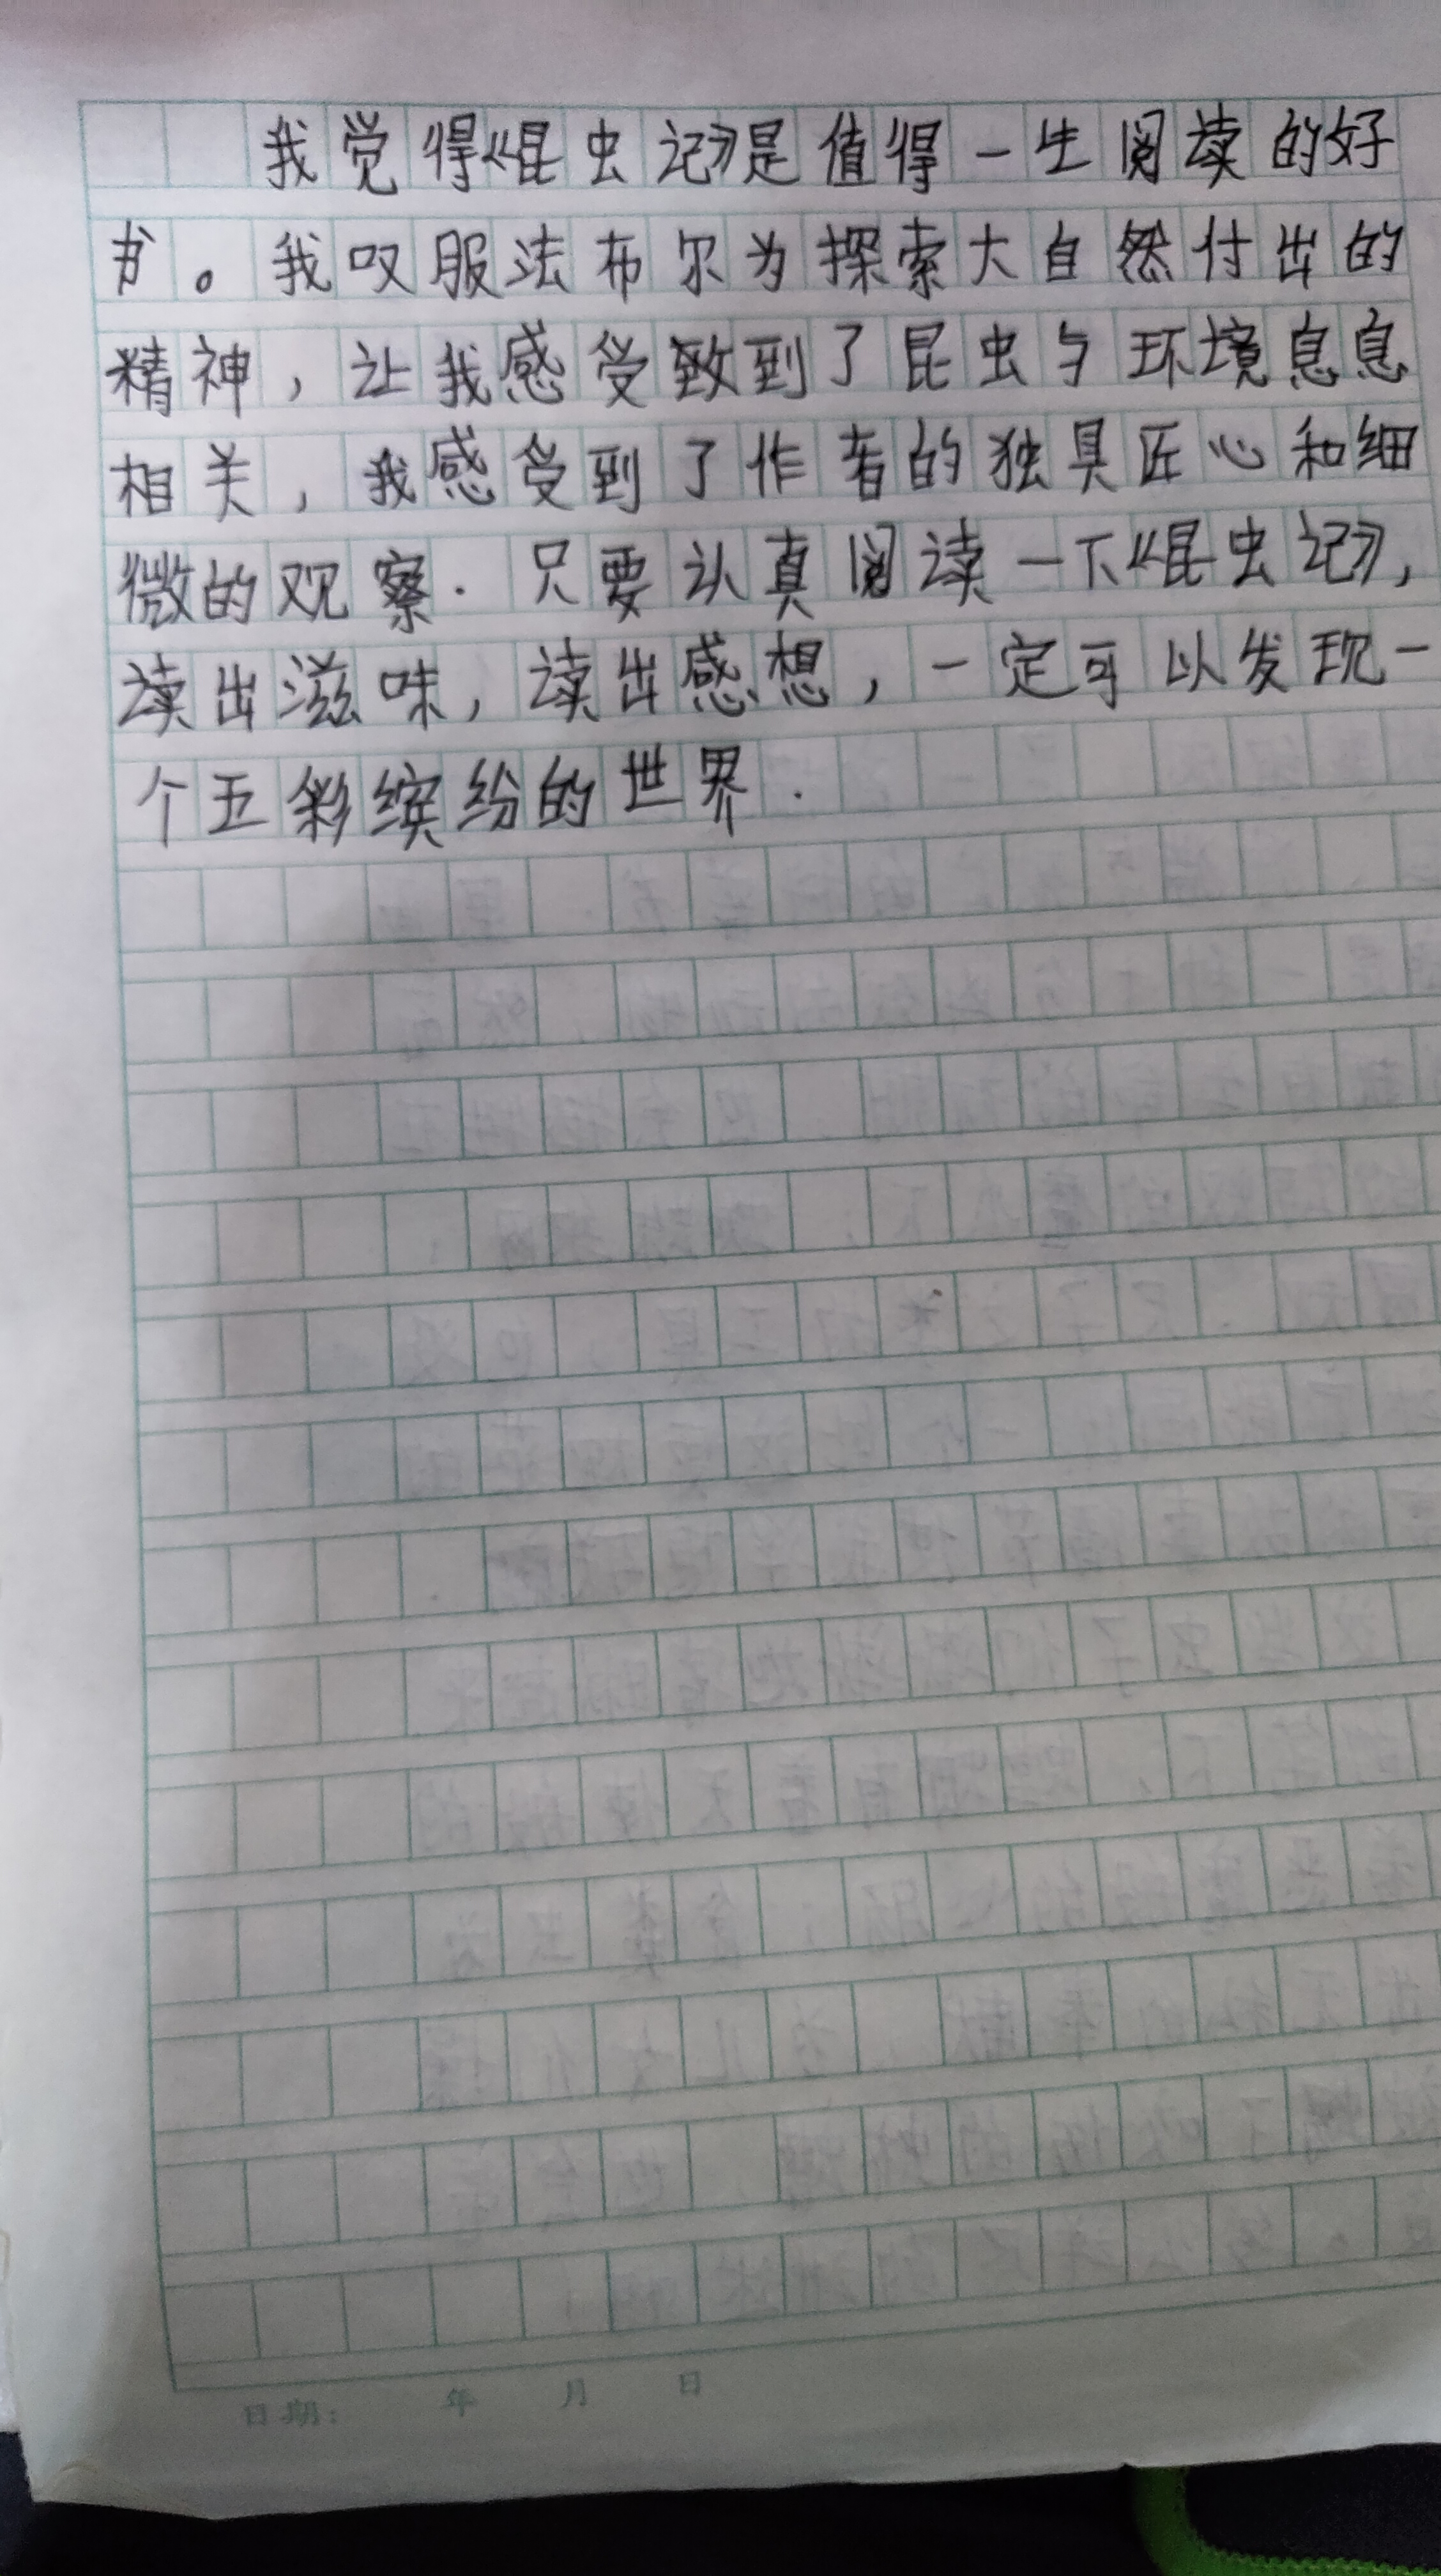 我觉得《昆虫记》是值得一生阅读的好
书。我叹服法布尔为探索大自然付出的
精神，让我感受致到了昆虫与环境息息
相关，我感受到了作者的独具匠心和细
微的观察．只要认真阅读一下《昆虫记》，
读出滋味，读出感想，一定可以发现一
个五彩缤纷的世界．
日期： 年 月 日